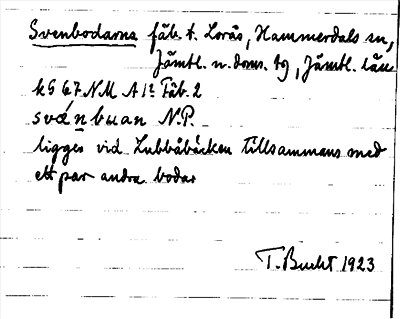 Svenbodarna fäb. t. Lorås, Hammerdals sn,
Jämtl. n. doms. tg, Jämtl. län
kG 67 NM A 12 Fäb. 2
svánbuan N.P.
ligger vid Lubbåbäcken tillsammans med
ett par andra bodar
T. Bucht 1923